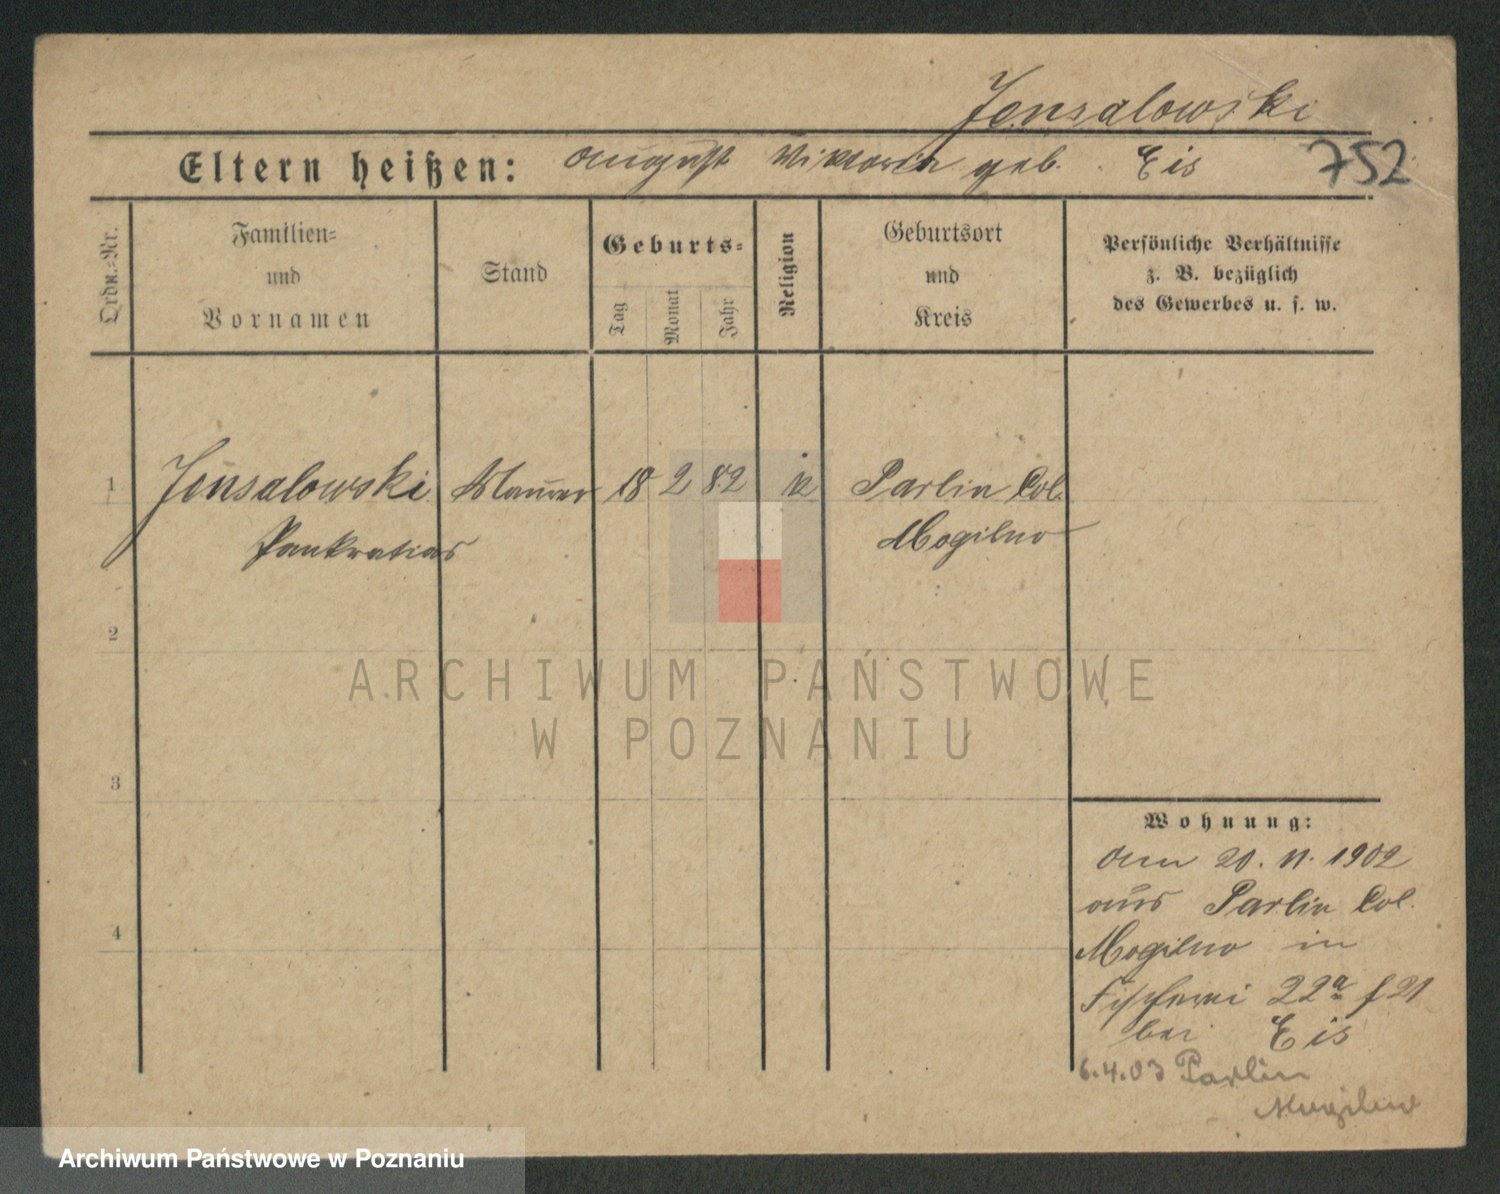 Jensalowski
Eltern heißen: August Wiktoria geb. Eis
752
Ordn.-Nr.
Familien-
und
Vornamen
Stand
Geburts-
Tag
Monat
Jahr
Religion
Geburtsort
und
Kreis
Persönliche Verhältnisse
z. B. bezüglich
des Gewerbes u. s. w.
1 Jensalowski Maurer 18 2 82 k Parlin Col.
Pankratius Mogilno
2
3
4
ARCHIWUM PAŃSTWOWE
W POZNANIU
Wohnung:
Am 20. 11. 1902
aus Parlin Col.
Mogilno in
Fischerei 22a f 21
bei Eis
6.4.03 Parlin
Mogilno
Archiwum Państwowe w Poznaniu